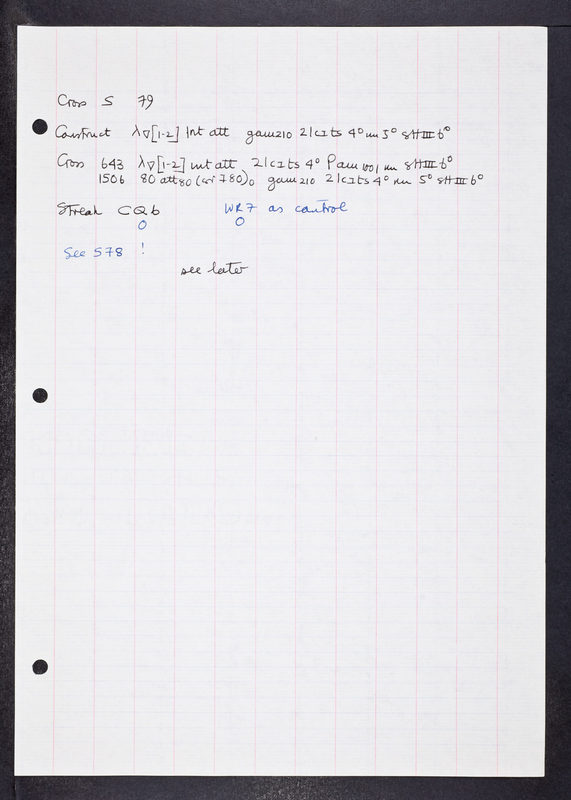 Cross S 79
Construct λ∇[1-2] Int att gam210 21 cI ts 4° nin 5° sHIII 6°
Cross 643 λ∇[1-2] int att 21 cI ts 4° Pam1001 nin sHIII 6°
1506 80 att80 (or 780)0 gam210 21 cI ts 4° nin 5° sHIII 6°
Streak CQ6 WR7 as control
0 0
See S78 !
see later